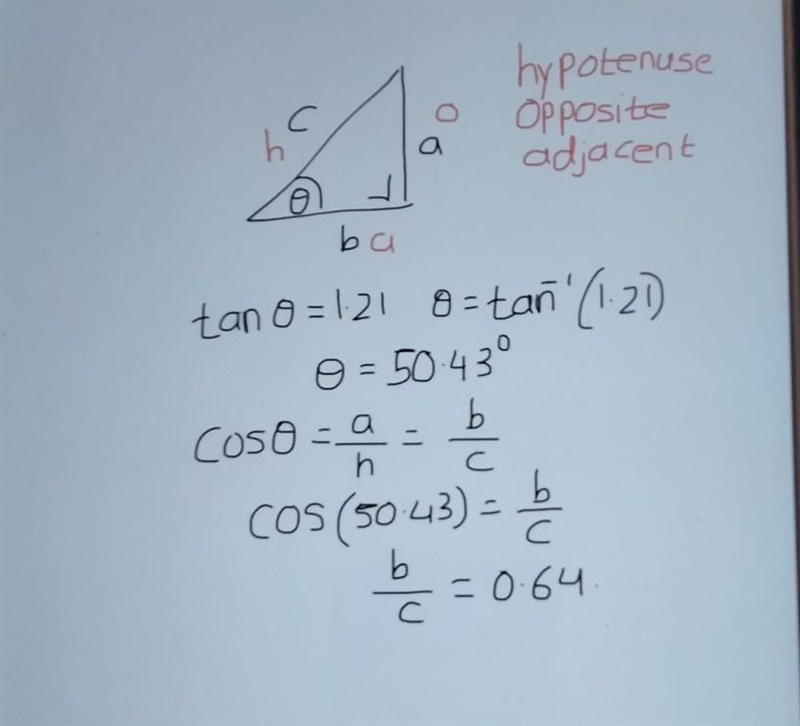 hypotenuse
opposite
adjacent
h c
o
a
θ
b a
tan θ = 1.21 θ = tan⁻¹ (1.21)
θ = 50.43°
cosθ = a/h = b/c
cos (50.43) = b/c
b/c = 0.64.